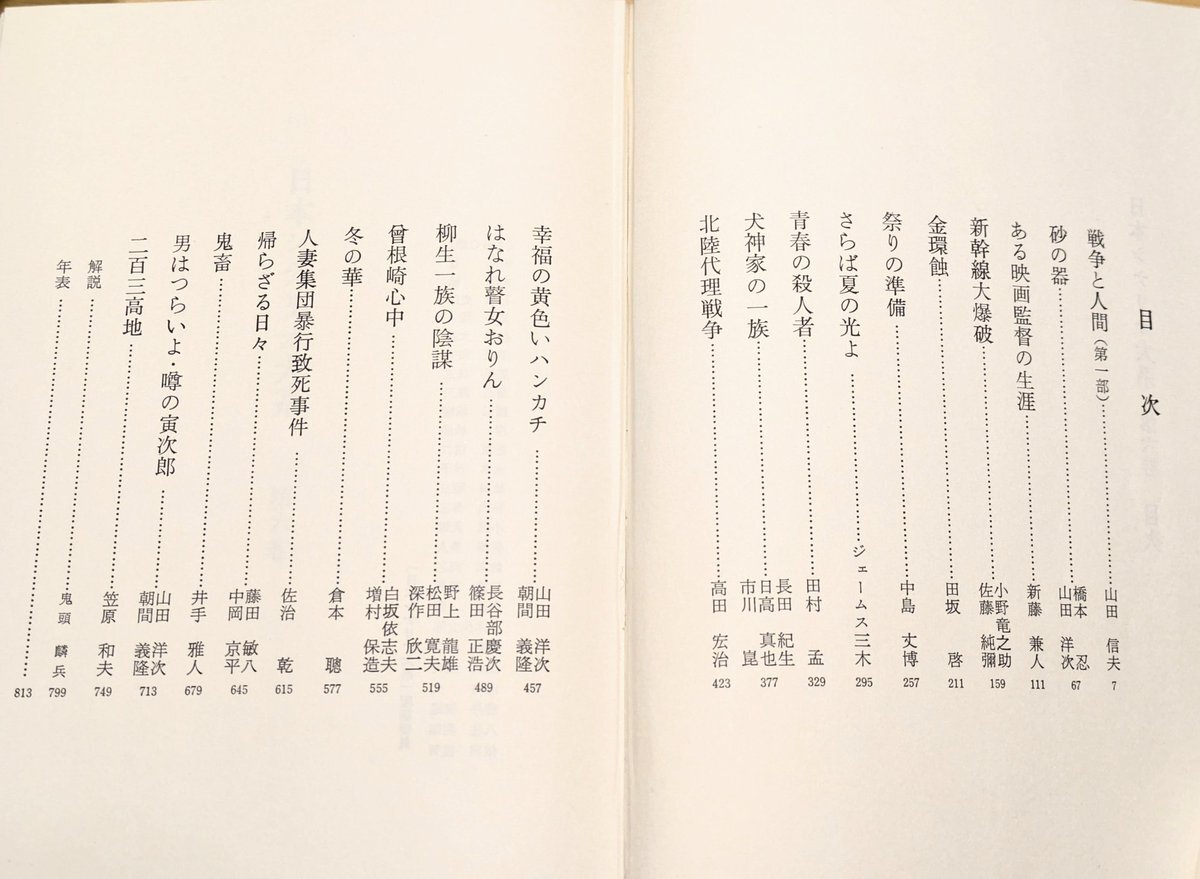 目次
戦争と人間（第一部）……山田 信夫 7
砂の器……橋本 忍 山田 洋次 67
ある映画監督の生涯……新藤 兼人 111
新幹線大爆破……小野竜之助 佐藤 純彌 159
金環蝕……田坂 啓 211
祭りの準備……中島 丈博 257
さらば夏の光よ……ジェームス三木 295
青春の殺人者……田村 孟 329
犬神家の一族……長田 紀生 日高 真也 市川 崑 377
北陸代理戦争……高田 宏治 423
幸福の黄色いハンカチ……山田 洋次 朝間 義隆 457
はなれ瞽女おりん……長谷部慶次 篠田 正浩 489
柳生一族の陰謀……野上 龍雄 松田 寛夫 深作 欣二 519
曾根崎心中……白坂依志夫 増村 保造 555
冬の華……倉本 聰 577
人妻集団暴行致死事件……佐治 乾 615
帰らざる日々……藤田 敏八 中岡 京平 645
鬼畜……井手 雅人 679
男はつらいよ・噂の寅次郎……山田 洋次 朝間 義隆 713
二百三高地……笠原 和夫 749
解説……鬼頭 麟兵 799
年表……813